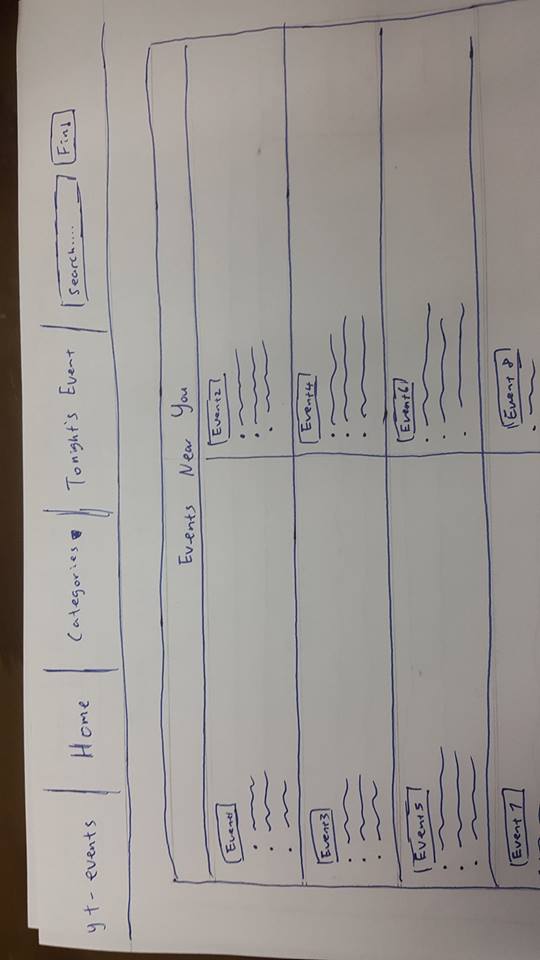 yt-events | Home | Categories | Tonight's Event | Search.... Find
Events Near You
Event1 Event2
Event3 Event4
Event5 Event6
Event 7 Event 8